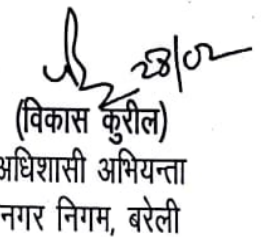 28/02
(विकास कुरील)
अधिशासी अभियन्ता
नगर निगम, बरेली